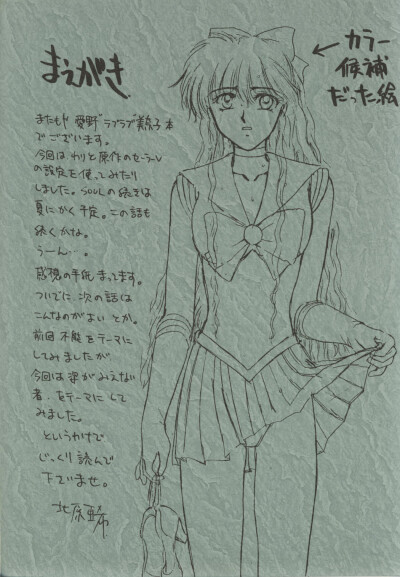 まえがき
またもや 愛野"ラブラブ"美奈子本
でございます。
今回は わりと原作のセーラーV
の設定を使ってみたり
しました。SOULの続きは
夏にかく予定。この話も
続くかな。
うーん…。
感想の手紙 まってます。
ついでに 次の話は
こんなのがよい とか。
前回 不能 をテーマに
してみましたが
今回は 姿がみえない
者、をテーマに して
みました。
というわけで
じっくり読んで
下さいませ。
北原亜希
←カラー
候補
だった絵